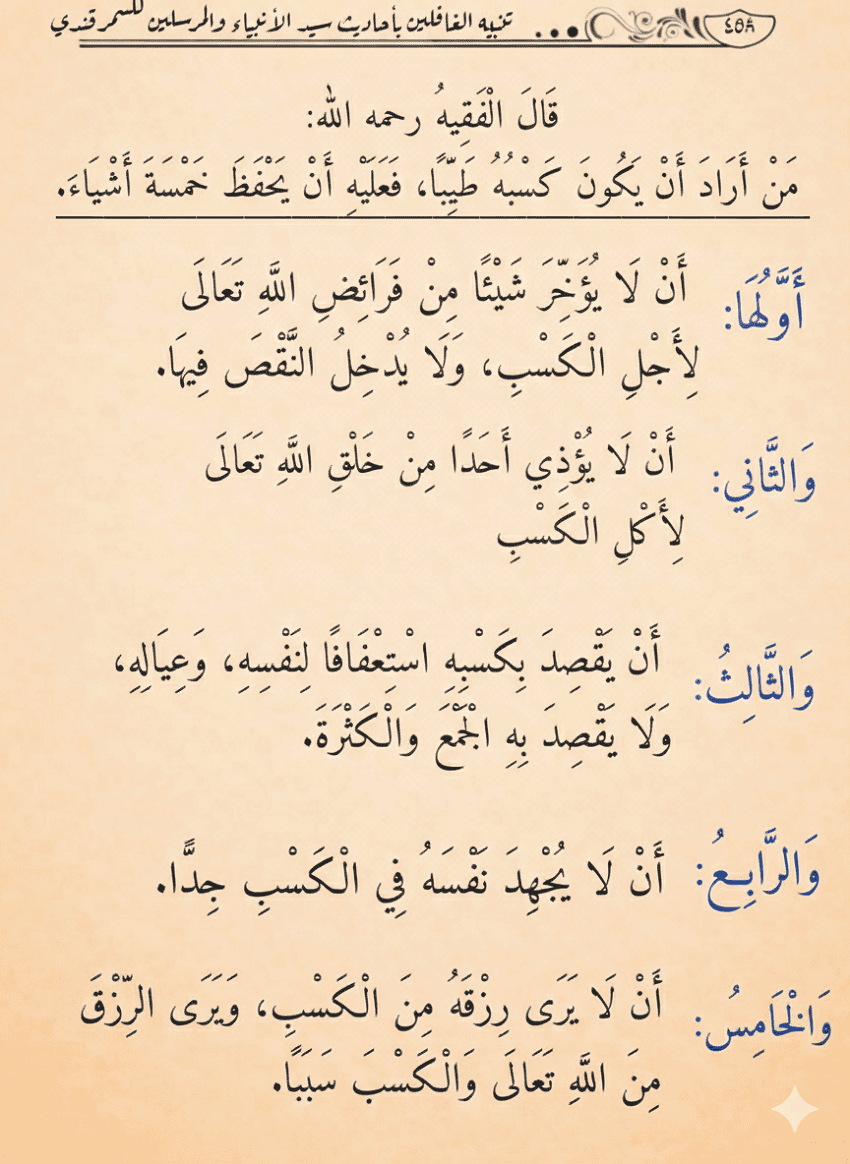 ٤٥٨ ... تنبيه الغافلين بأحاديث سيد الأنبياء والمرسلين للسمرقندي
قَالَ الْفَقِيهُ رحمه الله:
مَنْ أَرَادَ أَنْ يَكُونَ كَسْبُهُ طَيِّبًا، فَعَلَيْهِ أَنْ يَحْفَظَ خَمْسَةَ أَشْيَاءَ.
أَوَّلُهَا: أَنْ لَا يُؤَخِّرَ شَيْئًا مِنْ فَرَائِضِ اللَّهِ تَعَالَى
لِأَجْلِ الْكَسْبِ، وَلَا يُدْخِلُ النَّقْصَ فِيهَا.
وَالثَّانِي: أَنْ لَا يُؤْذِي أَحَدًا مِنْ خَلْقِ اللَّهِ تَعَالَى
لِأَكْلِ الْكَسْبِ
وَالثَّالِثُ: أَنْ يَقْصِدَ بِكَسْبِهِ اسْتِعْفَافًا لِنَفْسِهِ، وَعِيَالِهِ،
وَلَا يَقْصِدَ بِهِ الْجَمْعَ وَالْكَثْرَةَ.
وَالرَّابِعُ: أَنْ لَا يُجْهِدَ نَفْسَهُ فِي الْكَسْبِ جِدًّا.
وَالْخَامِسُ: أَنْ لَا يَرَى رِزْقَهُ مِنَ الْكَسْبِ، وَيَرَى الرِّزْقَ
مِنَ اللَّهِ تَعَالَى وَالْكَسْبَ سَبَبًا.